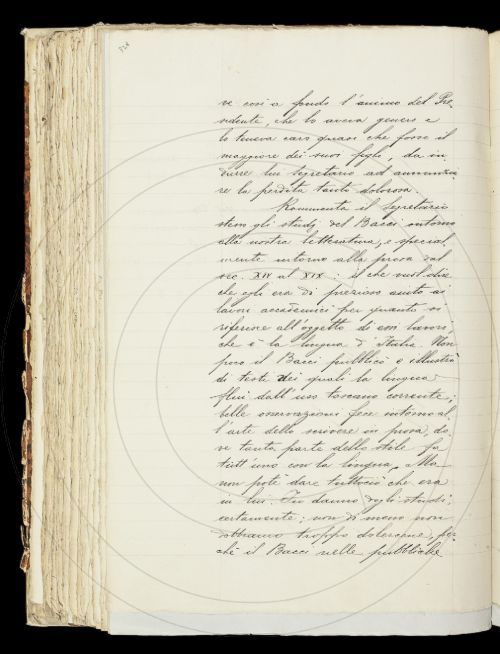 ve così a fondo l'animo del Pre-
sidente, che lo aveva genero e
lo teneva caro quasi che fosse il
maggiore dei suoi figli, da in
durre lui Segretario ad annunzia-
re la perdita tanto dolorosa.
Rammenta il Segretario
stesso gli studj del Bacci intorno
alla nostra letteratura, e special
mente intorno alla prosa dal
sec. XIV al XIX: il che vuol dire
che egli era di prezioso aiuto ai
lavori accademici per quanto si
riferisce all'oggetto di essi lavori,
che è la lingua d'Italia. Non
poco il Bacci pubblicò e illustrò
di testi dei quali la lingua
fluì dall'uso toscano corrente;
belle osservazioni fece intorno al
l'arte dello scrivere in prosa, do-
ve tanta parte dello stile fa
tutt'uno con la lingua. Ma
non potè dare tuttociò che era
in lui. In danno degli studi,
certamente; non di meno non
abbiamo troppo dolercene, per-
chè il Bacci nelle pubbliche